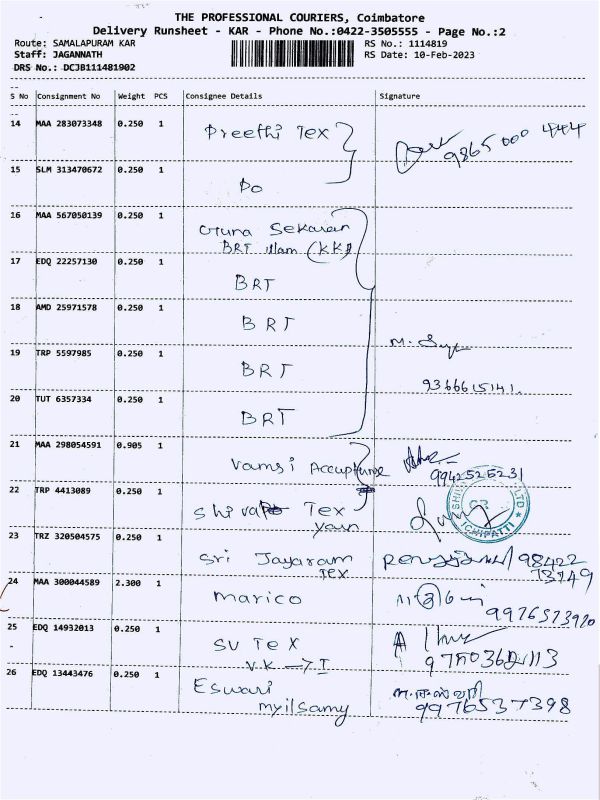 THE PROFESSIONAL COURIERS, Coimbatore
Delivery Runsheet - KAR - Phone No.:0422-3505555 - Page No.:2
Route: SAMALAPURAM KAR
RS No.: 1114819
Staff: JAGANNATH
RS Date: 10-Feb-2023
DRS No.: DCJB111481902
S No Consignment No Weight PCS Consignee Details Signature
14 MAA 283073348 0.250 1 Preethi Tex
9865 000 444
15 SLM 313470672 0.250 1 Do
16 MAA 567050139 0.250 1 Guna Sekaran
BRT illam (KK)
17 EDQ 22257130 0.250 1 BRT
18 AMD 25971578 0.250 1 BRT
19 TRP 5597985 0.250 1 BRT
9366615141.
20 TUT 6357334 0.250 1 BRT
21 MAA 298054591 0.905 1 Vamsi Accupture
9942525231
22 TRP 4413089 0.250 1 Shiva Tex
yarn
23 TRZ 320504575 0.250 1 Sri Jayaram
Tex
98422
73749
24 MAA 300044589 2.300 1 Marico
9976573920
25 EDQ 14932013 0.250 1 SV Tex
V.K → I
26 EDQ 13443476 0.250 1 Eswari
myilsamy
9976537398